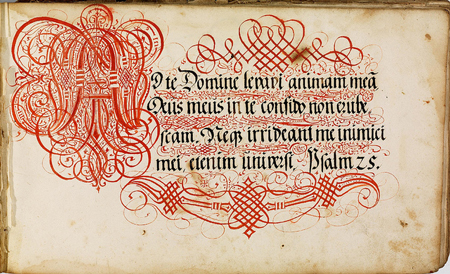 AD te Domine levavi animam meā
Deus meus in te confido non erube
scam. Neqꝫ irrideant me inimici
mei, etenim universi. Psalm 25.